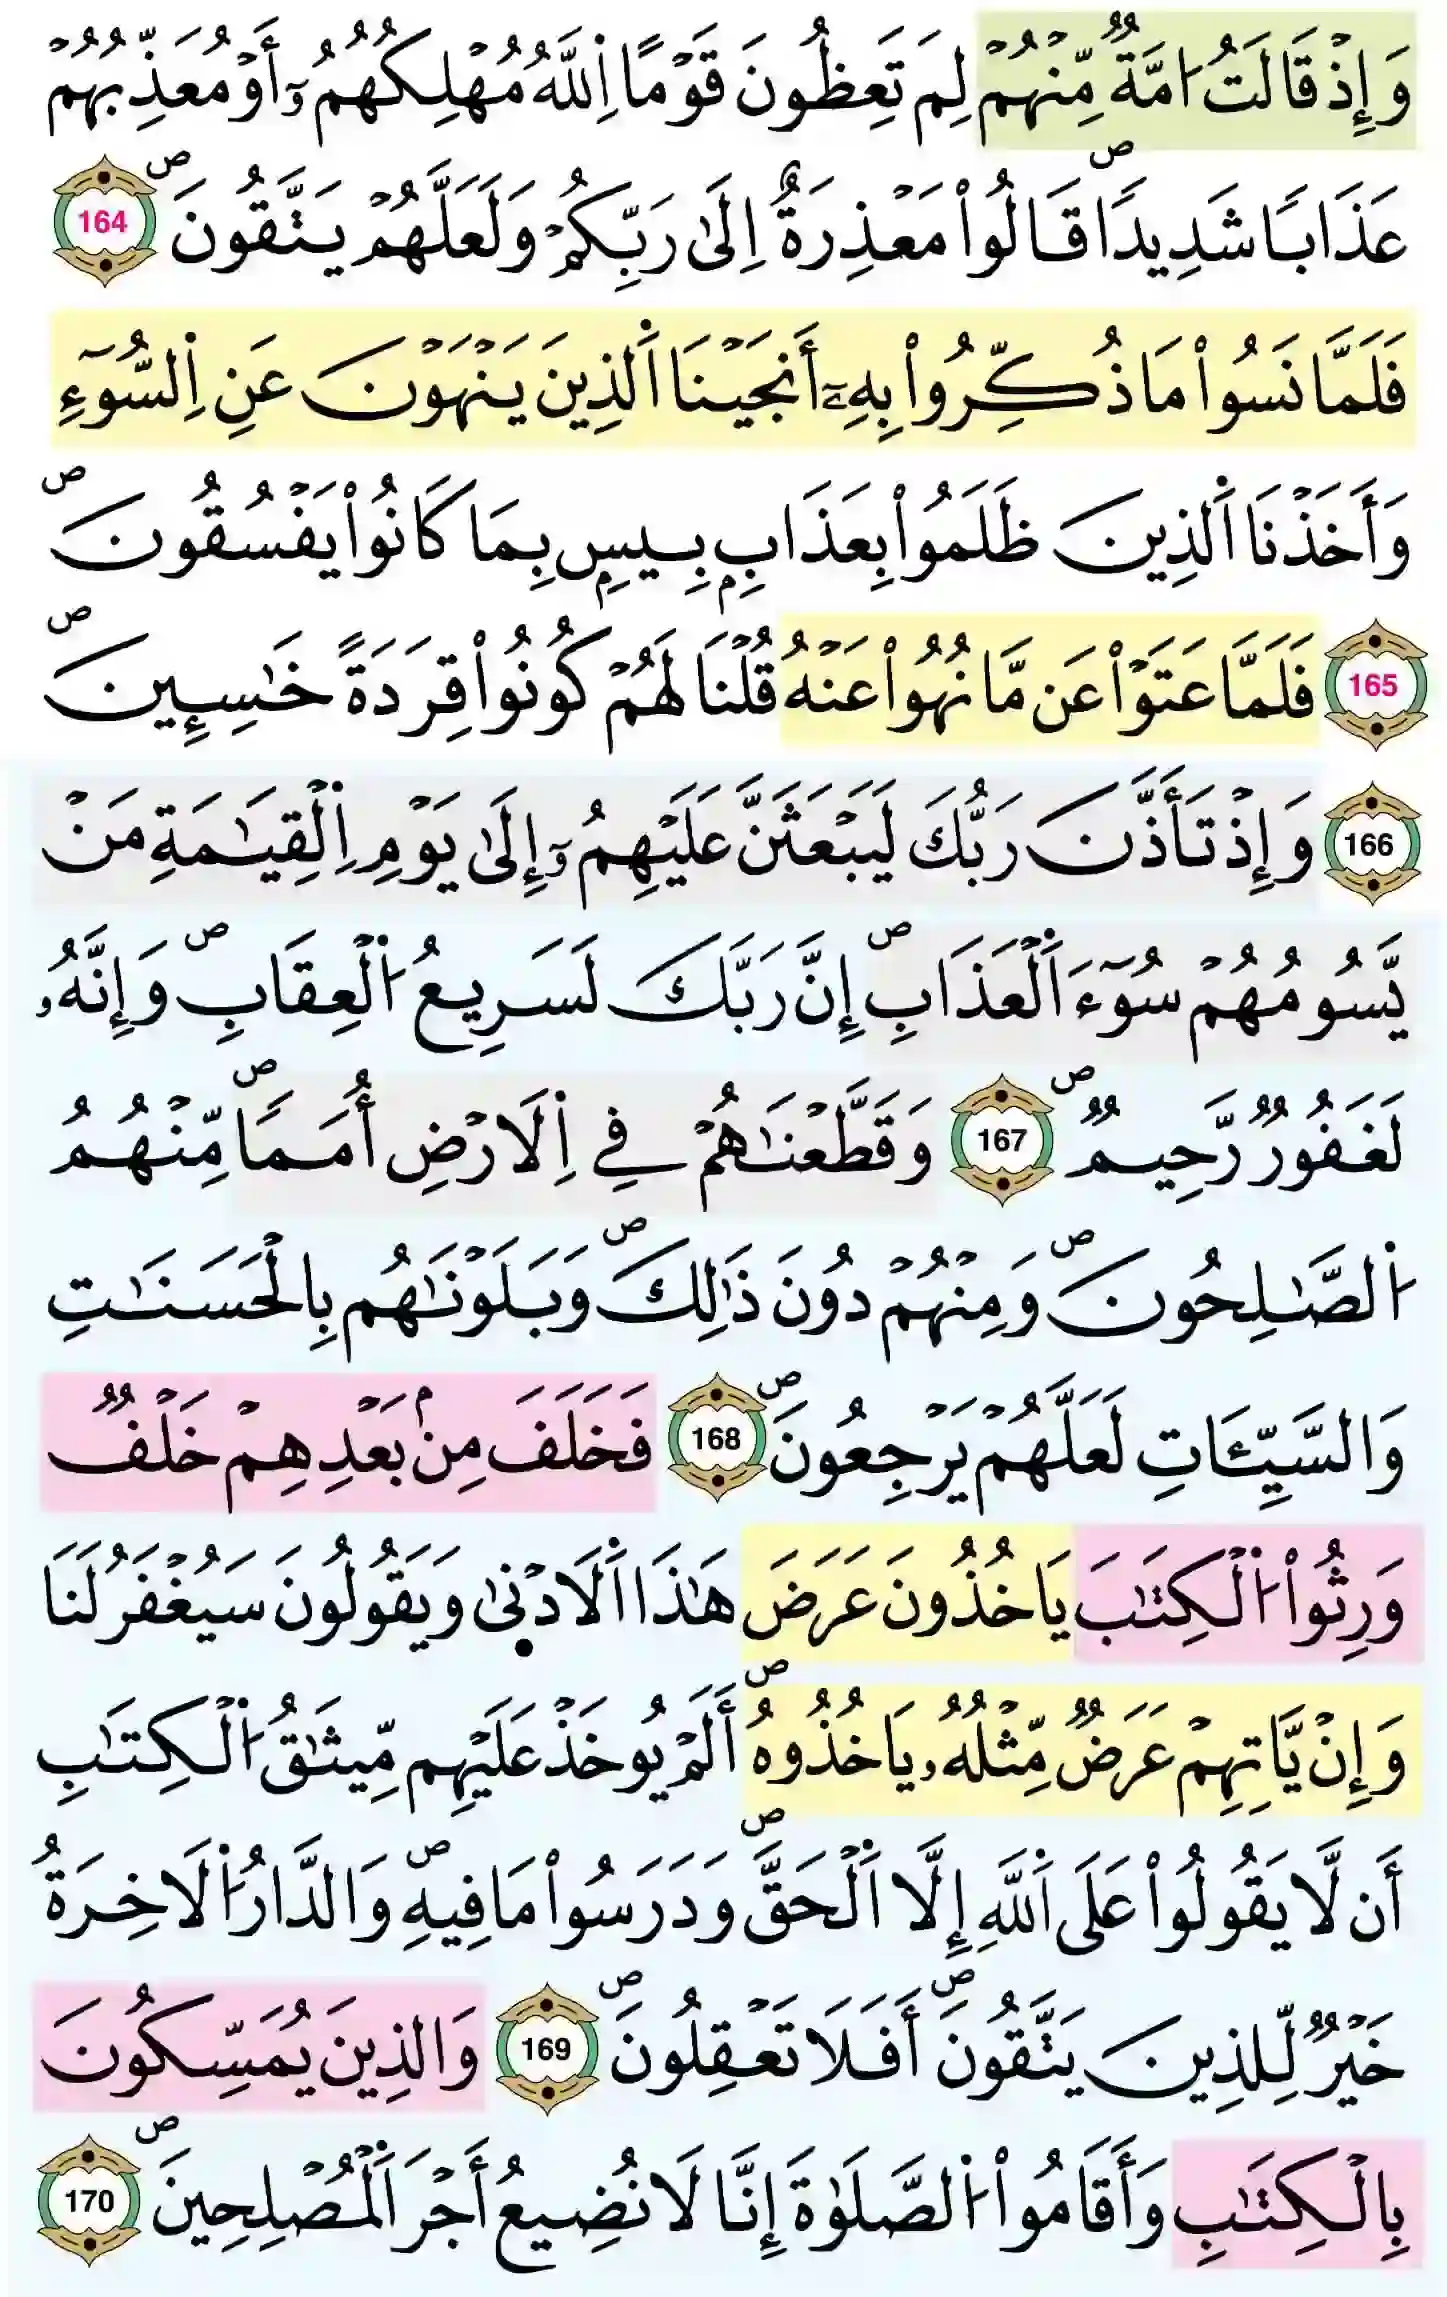 وَإِذْ قَالَتُ ا۟مَّةٌ مِّنْهُمْ لِمَ تَعِظُونَ قَوْمًا اِ۬للَّهُ مُهْلِكُهُمُۥٓ أَوْ مُعَذِّبُهُمْ
عَذَابٗا شَدِيدٗاۖ قَالُوا۟ مَعْذِرَةٌ اِلَىٰ رَبِّكُمْ وَلَعَلَّهُمْ يَتَّقُونَۖ 164
فَلَمَّا نَسُوا۟ مَا ذُكِّرُوا۟ بِهِۦٓ أَنجَيْنَا اَ۬لذِينَ يَنْهَوْنَ عَنِ اِ۬لسُّوٓءِ
وَأَخَذْنَا اَ۬لذِينَ ظَلَمُوا۟ بِعَذَابِۭ بِيسِۭ بِمَا كَانُوا۟ يَفْسُقُونَۖ
165 فَلَمَّا عَتَوْا۟ عَن مَّا نُهُوا۟ عَنْهُ قُلْنَا لَهُمْ كُونُوا۟ قِرَدَةً خَٰسِـِٕينَۖ
166 وَإِذْ تَأَذَّنَ رَبُّكَ لَيَبْعَثَنَّ عَلَيْهِمُۥٓ إِلَىٰ يَوْمِ اِ۬لْقِيَٰمَةِ مَنْ
يَّسُومُهُمْ سُوٓءَ اَ۬لْعَذَابِۖ إِنَّ رَبَّكَ لَسَرِيعُ اُ۬لْعِقَابِۖ وَإِنَّهُۥ
لَغَفُورٌ رَّحِيمٌۖ 167 وَقَطَّعْنَٰهُمْ فِي اِ۬لَارْضِ أُمَمٗاۖ مِّنْهُمُ
اُ۬لصَّٰلِحُونَۖ وَمِنْهُمْ دُونَ ذَٰلِكَۖ وَبَلَوْنَٰهُم بِالْحَسَنَٰتِ
وَالسَّيِّـَٔاتِ لَعَلَّهُمْ يَرْجِعُونَۖ 168 فَخَلَفَ مِنۢ بَعْدِهِمْ خَلْفٌ
وَرِثُوا۟ اُ۬لْكِتَٰبَ يَاخُذُونَ عَرَضَ هَٰذَا اَ۬لَادْنۭىٰ وَيَقُولُونَ سَيُغْفَرُ لَنَا
وَإِنْ يَّاتِهِمْ عَرَضٌ مِّثْلُهُۥ يَاخُذُوهُۖ أَلَمْ يُوخَذْ عَلَيْهِم مِّيثَٰقُ اُ۬لْكِتَٰبِ
أَن لَّا يَقُولُوا۟ عَلَى اَ۬للَّهِ إِلَّا اَ۬لْحَقَّۖ وَدَرَسُوا۟ مَا فِيهِۖ وَالدَّارُ اُ۬لَاخِرَةُ
خَيْرٌ لِّلذِينَ يَتَّقُونَۖ أَفَلَا تَعْقِلُونَۖ 169 وَالذِينَ يُمَسِّكُونَ
بِالْكِتَٰبِ وَأَقَامُوا۟ اُ۬لصَّلَوٰةَ إِنَّا لَا نُضِيعُ أَجْرَ اَ۬لْمُصْلِحِينَۖ 170